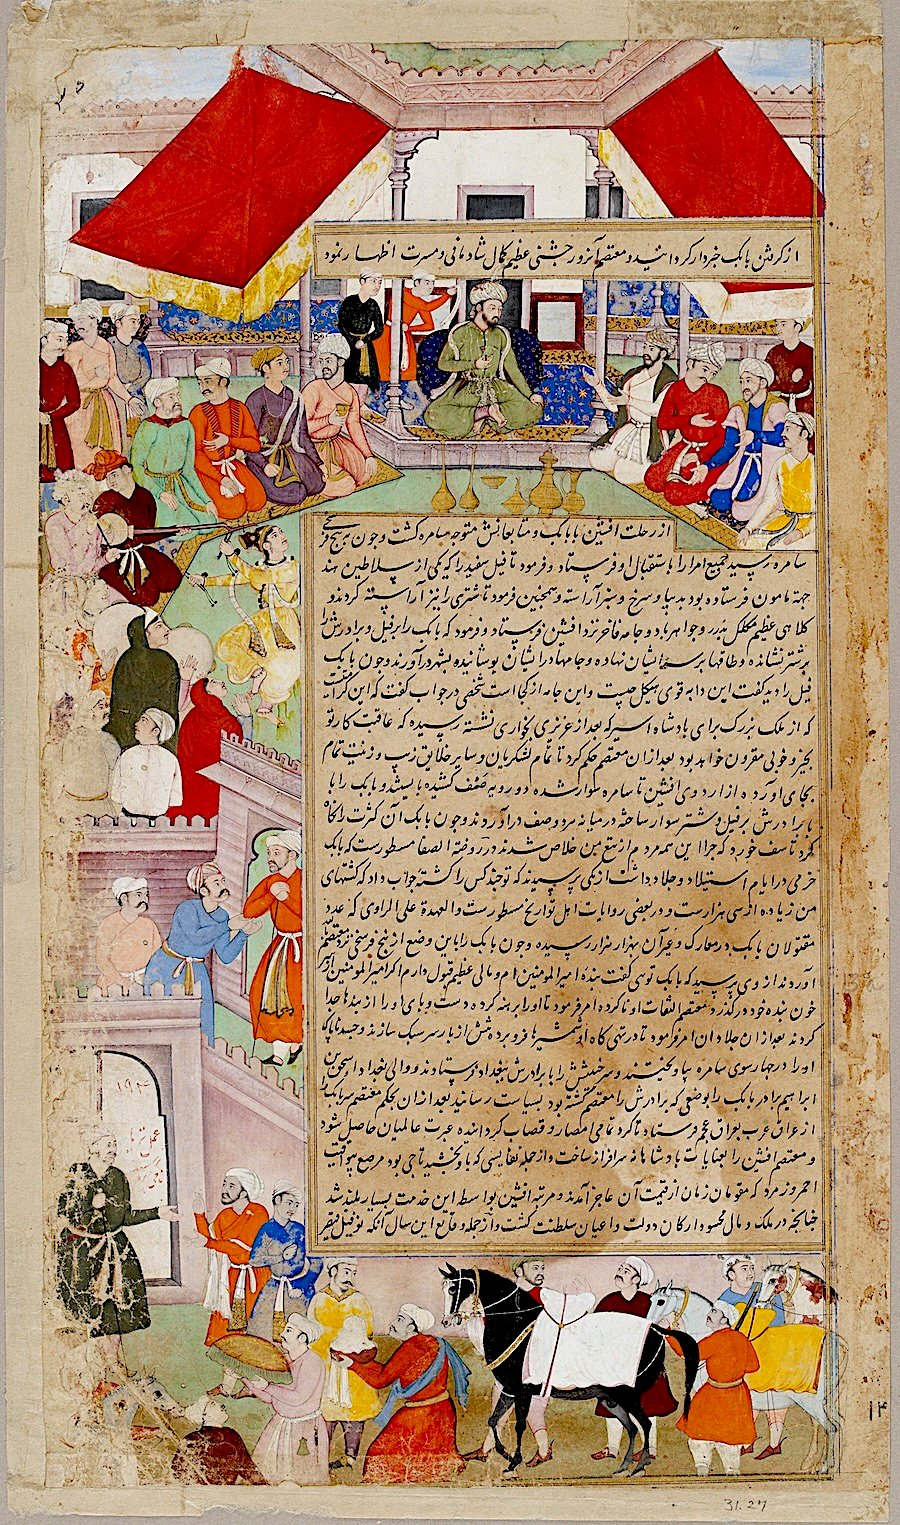 از گرفتن بابک خبردار گردانیدند و معتصم آنروز جشنی عظیم کمال شادمانی و مسرت اظهار نمود
از رحلت افشین با بابک و متابعانش متوجه سامره گشت و چون به پنج فرسخی
سامره رسید جمیع امرا را باستقبال او فرستاد و فرمود تا فیل سفید را که یکی از سلاطین هند
جهة مامون فرستاده بود بدیبا و سرخ و سبز آراسته و همچنین فرمود تا شتری را نیز آراسته کردند و
کلاهی عظیم مکلل بدر و جواهر با دو جامه فاخر نزد افشین فرستاد و فرمود که بابک را بر فیل و برادرش را
بر شتر نشانده و طاقها بر سر ایشان نهاده و جامها در ایشان پوشانیده بشهر درآورند و چون بابک
فیل را دید گفت این دابه قوی هیکل چیست و این جامه از کجا است شخصی در جواب گفت که این کرامتیست
که از ملک بزرگ برای پادشاه اسیر که بعد از عزیزی بخواری نشسته رسیده که عاقبت کار تو
بخیر و خوبی مقرون خواهد بود بعد از آن معتصم حکم کرد تا تمام لشکریان و سایر خلایق زیب و زینت تمام
بجای آورده از اردوی افشین تا سامره سوار شده دو رویه صف کشیده بایستند و بابک را با
برادرش بر فیل و شتر سوار ساخته در میانه هر دو صف درآوردند و چون بابک آن کثرت را نگاه
کرد تاسف خورد که چرا این همه مردم از تیغ من خلاص شدند در روضة الصفا مسطورست که بابک
خرمی در ایام استیلا ده جلاد داشت از یکی پرسیدند که تو چند کس را کشته جواب داد که کشتهای
من زیاده از سی هزارست و در بعضی روایات اهل تواریخ مسطورست و العهدة علی الراوی که عدد
مقتولان بابک در معارک و غیر آن بهزار هزار رسیده و چون بابک را باین وضع از پنج فرسخی نزد معتصم
آوردند از وی پرسید که بابک تویی گفت بنده امیرالمومنین ام و مالی عظیم قبول دارم اگر امیرالمومنین از
خون بنده خود درگذرد معتصم التفات او ناکرده امر فرمود تا او را برهنه کرده دست و پای او را از بندها جدا
کردند بعد از آن جلادان امر فرمود تا در تهی گاه او شمشیرها فرو برده تنش از بار سر سبک سازند و جسد ناپاک
او را در چهارسوی سامره بیاویختند و سر خبیثش را با برادرش ببغداد فرستادند و والی بغداد اسحق بن
ابراهیم برادر بابک را بوضعی که برادرش را معتصم کشته بود بسیاست رسانید بعد از آن بحکم معتصم سر بابک را
از عراق عرب بعراق عجم فرستاد تا گرد تمامی امصار و قصبات گردانیده عبرت عالمیان حاصل شود
و معتصم افشین را بعنایات پادشاهانه سرافراز ساخت و از جمله نفایسی که باو بخشید تاجی بود مرصع بیواقیت
احمر و زمرد که مقومان زمان از قیمت آن عاجز آمدند و مرتبه افشین بواسطه این خدمت بسیار بلند شد
چنانچه در ملک و مال محسود ارکان دولت و اعیان سلطنت گشت و از جمله وقایع این سال آنکه توفیل قیصر
۱۹۴
عمل
31.27
۱۲